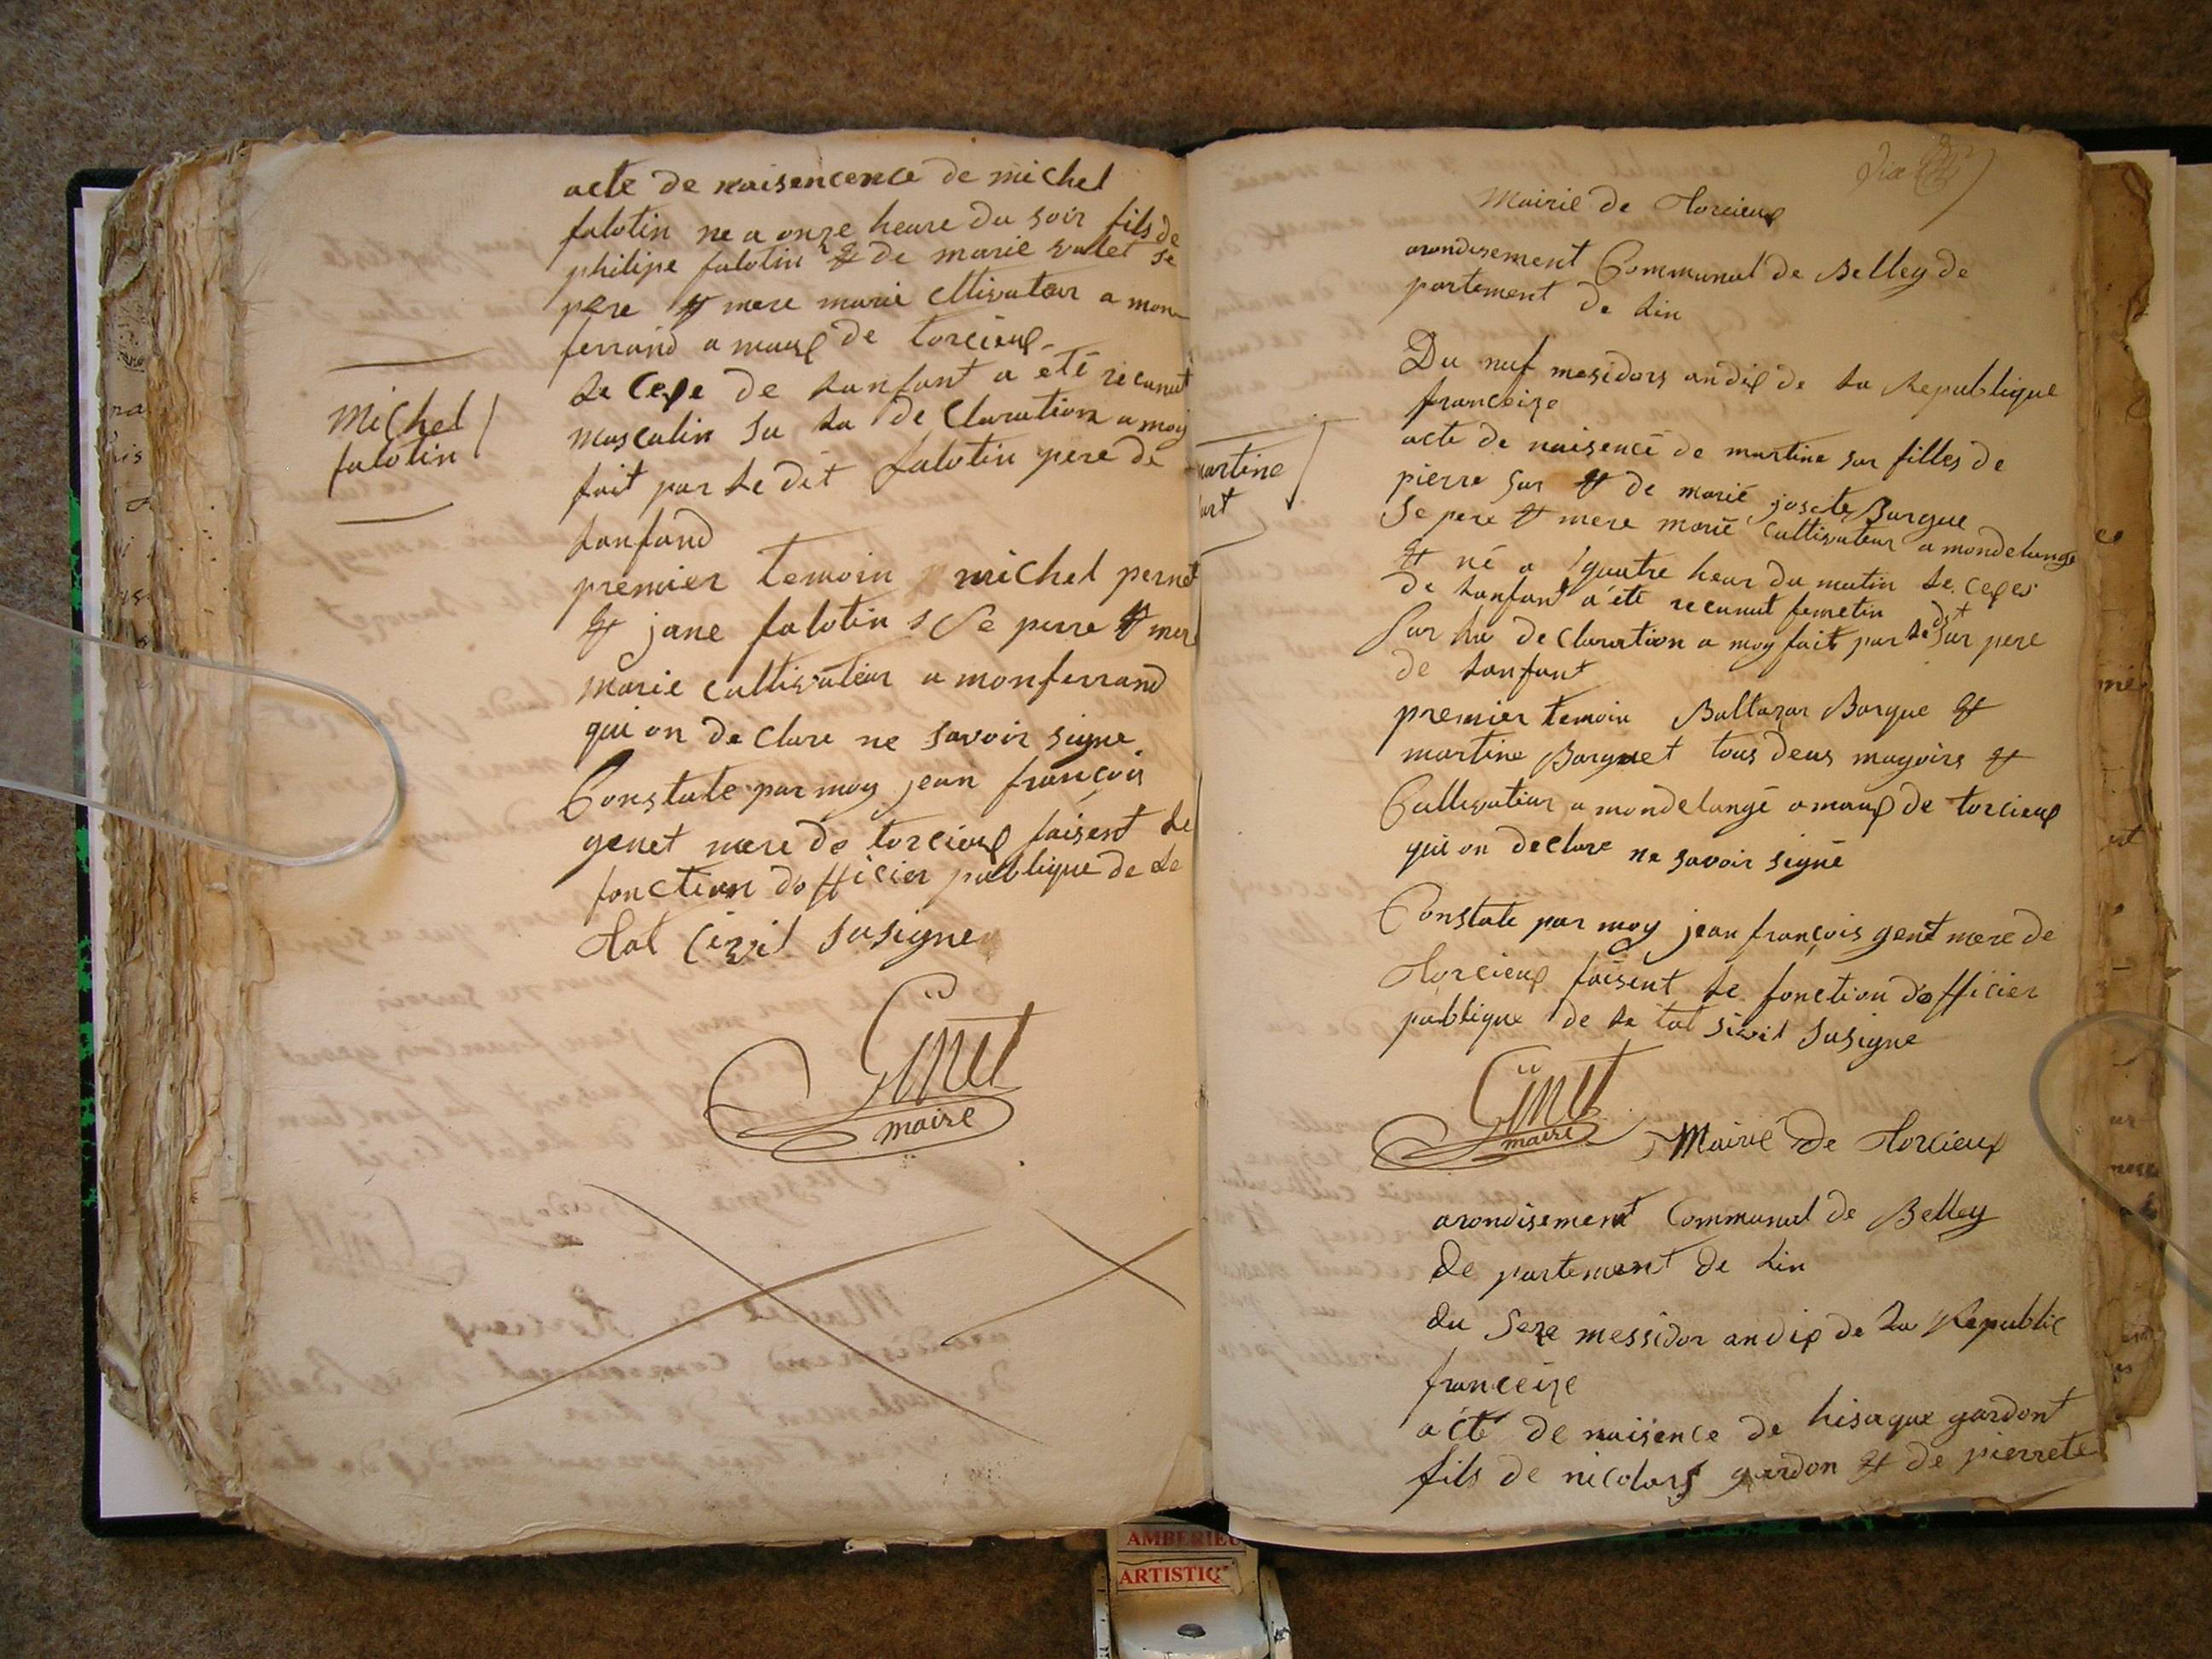 acte de naisencence de michel
falotin ne a onze heure du soir fils de
philipe falotin et de marie valet se
pere et mere marie cltivateur a mon
ferrand a maux de torcieux
Le Cexe de Lanfant a eté recunut
Masculin su La de Claration a moy
fait par Le dit falotin pere de
Lanfand
Michel
falotin
premier temoin michel pernet
et jane falotin s Se perre et mere
marie cultivateur a monferrand
qui on de Clare ne savoir signe
Constate par moy jean françois
genet mere de torcieux faisent Le
fonction d'officier publique de Le
tat Civil susigne
Ginet
maire
Mairie de torcieux
arondisement Communal de Belley de
partement de Lin
Du nuf mesidors an dix de La Republique
franceize
acte de naisencé de martine sur filles de
pierre sur et de marié josete Bargue
Se pere et mere marié Cultivateur a mondelange
et né a quatre heur du matin Le Cexes
de Lanfant a été recunut femelin
Sur La de Claration a moy fait par Le dit sur pere
de Lanfant
artine
urt
premier temoin Baltazar Borgue et
martine Barguet tous deus mayoirs et
Cultivateur a mondelangé a maux de torcieux
qui on declare ne savoir signé
Constate par moy jean françois genet mere de
torcieux faisent Le fonction d'officier
publique de Le tat sivil susigne
Ginet
maire
Mairié de torcieux
arondisement Communal de Belley
De partement de Lin
du seze messidor an dix de La Republic
franceize
acté de naisence de hisaque gardont
fils de nicolars gardon et de pierrete
AMBERIEU
ARTISTIQ